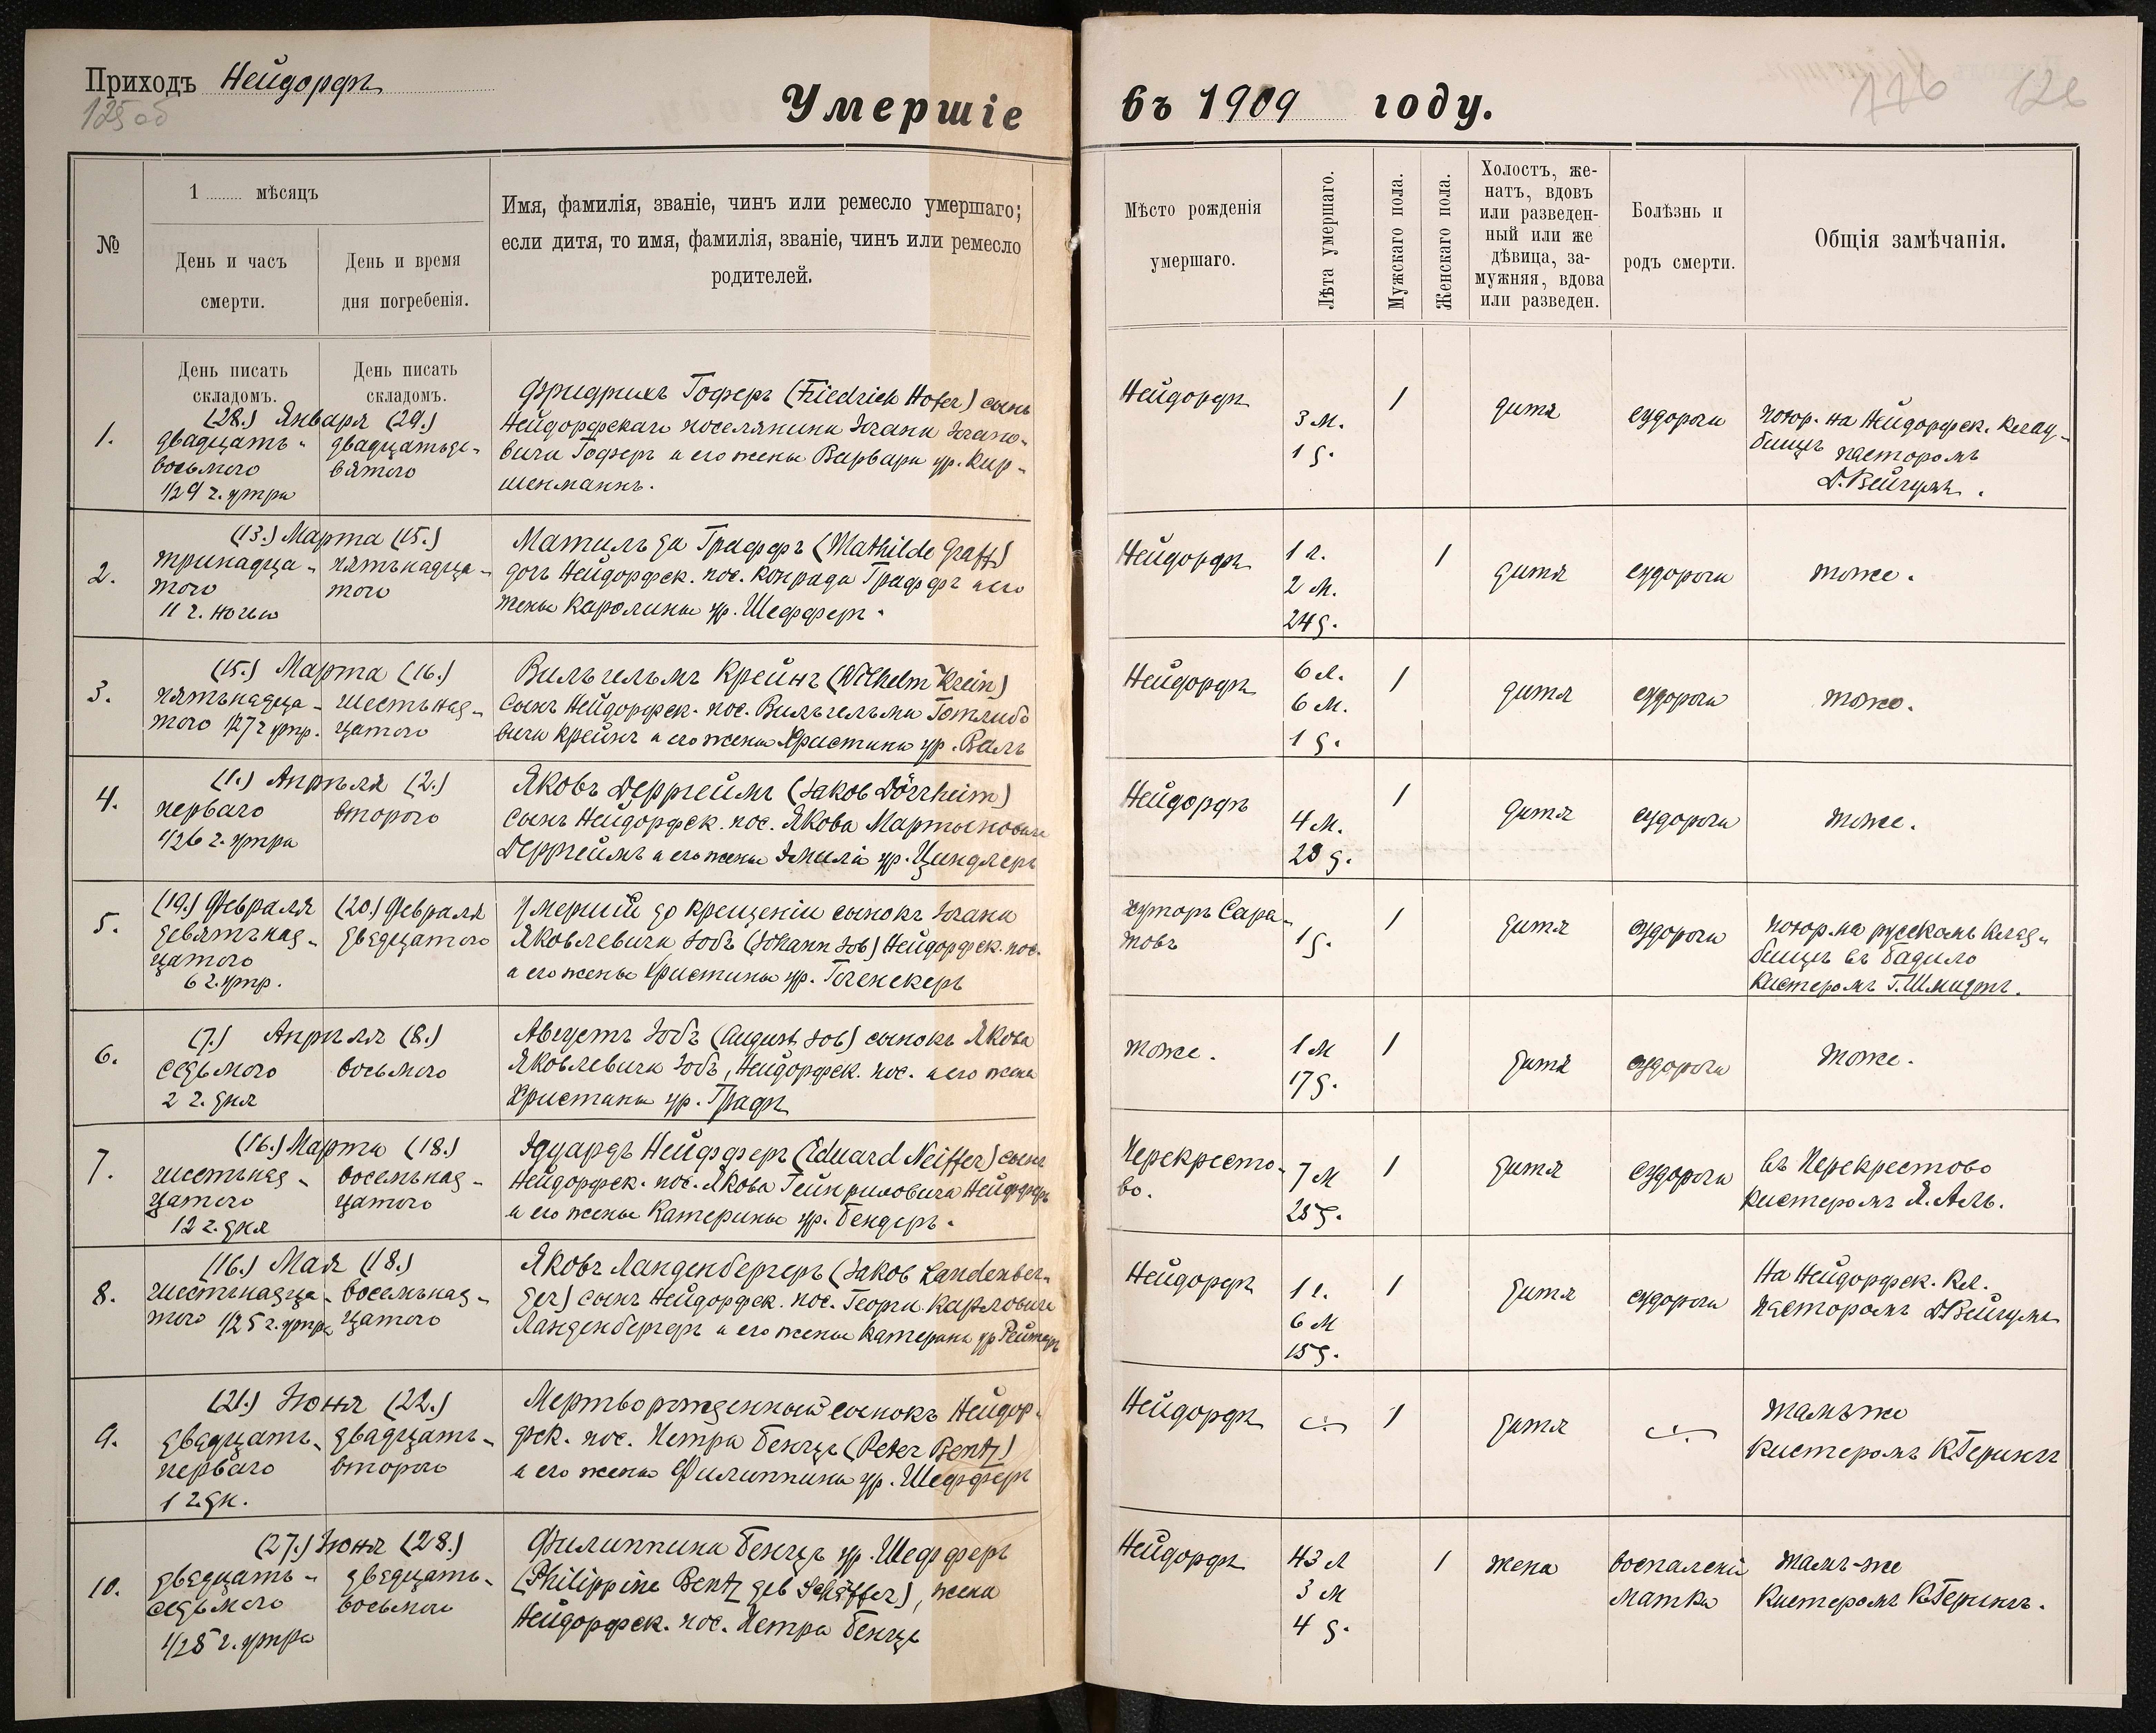 Приходъ Нейдорфъ
125 об
Умершіе
въ 1909 году.
126
№
1 ........ мѣсяцъ
День и часъ
смерти.
День и время
дня погребенія.
Имя, фамилія, званіе, чинъ или ремесло умершаго;
если дитя, то имя, фамилія, званіе, чинъ или ремесло
родителей.
Мѣсто рожденія
умершаго.
Лѣта умершаго.
Мужскаго пола.
Женскаго пола.
Холостъ, же-
натъ, вдовъ
или разведен-
ный или же
дѣвица, за-
мужняя, вдова
или разведен.
Болѣзнь и
родъ смерти.
Общія замѣчанія.
День писать
складомъ.
День писать
складомъ.
1.
(28.) Января (29.)
двадцать-
восьмого
1/2 9 ч. утра
двадцатьде-
вятого
Фридрихъ Гоферъ (Friedrich Hofer) сынъ
Нейдорфскаго поселянина Іогана Іогано-
вича Гоферъ и его жены Варвары ур. Кир-
шенманнъ.
Нейдорфъ
3 М.
1 д.
1
дитя
судороги
похор. на Нейдорфск. клад-
бищѣ пасторомъ
Д. Вейгумъ.
2.
(13.) Марта (15.)
тринадца-
того
11 ч. ночью
пятьнадца-
того
Матильда Граффъ (Mathilde Graff)
дочь Нейдорфск. пос. Конрада Граффъ и его
жены Каролины ур. Шефферъ.
Нейдорфъ
1 г.
2 М.
24 д.
1
дитя
судороги
тоже.
3.
(15.) Марта (16.)
пятьнадца-
того 1/2 7 ч утр.
шестьнад-
цатого
Вильгельмъ Крейнъ (Wilhelm Krein)
сынъ Нейдорфск. пос. Вильгельма Готлибо
вича Крейнъ и его жены Христины ур. Валъ
Нейдорфъ
6 л.
6 М.
1 д.
1
дитя
судороги
тоже.
4.
(1.) Апрѣля (2.)
перваго
1/2 6 ч. утра
второго
Яковъ Дерргеймъ (Jakob Dörrheim)
сынъ Нейдорфск. пос. Якова Мартыновича
Дерргеймъ и его жены Эмиліи ур. Циндлеръ
Нейдорфъ
4 М.
28 д.
1
дитя
судороги
тоже.
5.
(19.) Февраля
девятьнад-
цатого
6 ч. утр.
(20.) Февраля
двадцатого
Умершій до крещенія сынокъ Іогана
Яковлевича Іобъ (Johann Job) Нейдорфск. пос.
и его жены Христины ур.
хуторъ Сара-
товъ
1 д.
1
дитя
судороги
похор. на русскомъ клад-
бищѣ въ
кистеромъ Г. Шмидтъ.
6.
(7.) Апрѣля (8.)
седьмого
2 ч. дня
восьмого
Августъ Іобъ (August Job) сынокъ Якова
Яковлевича Іобъ, Нейдорфск. пос. и его жены
Христины ур. Графъ
тоже.
1 М
17 д.
1
дитя
судороги
тоже.
7.
(16.) Марта (18.)
шестьнад-
цатого
12 ч. дня
восемьнад-
цатого
Эдуардъ Нейфферъ (Eduard Neiffer) сынъ
Нейдорфск. пос. Якова Гейнриховича Нейфферъ
и его жены Катерины ур. Бендеръ.
Перекресто-
во.
7 М
25 д.
1
дитя
судороги
въ Перекрестово
кистеромъ Я. Аль.
8.
(16.) Мая (18.)
шестьнадца-
того 1/2 5 ч. утра
восемьнад-
цатого
Яковъ Ланденбергеръ (Jakob Landenber-
ger) сынъ Нейдорфск. пос. Георга Карловича
Ланденбергеръ и его жены Катерины ур Рейтеръ
Нейдорфъ
1 г.
6 М
15 д.
1
дитя
судороги
На Нейдорфск. кл.
пасторомъ Д. Вейгумъ
9.
(21.) Іюня (22.)
двадцать-
перваго
1 ч. дн.
двадцать-
второго
Мертворожденный сынокъ Нейдор-
фск. пос. Петра Бентцъ (Peter Bentz)
и его жены Филиппины ур. Шефферъ
Нейдорфъ
1
дитя
тамъ же
кистеромъ К. Герингъ
10.
(27.) Іюня (28.)
двадцать-
седьмого
1/2 5 ч. утра
двадцать-
восьмого
Филиппина Бентцъ ур. Шефферъ
(Philippine Bentz geb Schäffer), жена
Нейдорфск. пос. Петра Бентцъ
Нейдорфъ
43 л
3 М
4 д.
1
жена
воспаленій
матки
тамъ-же
кистеромъ К. Герингъ.